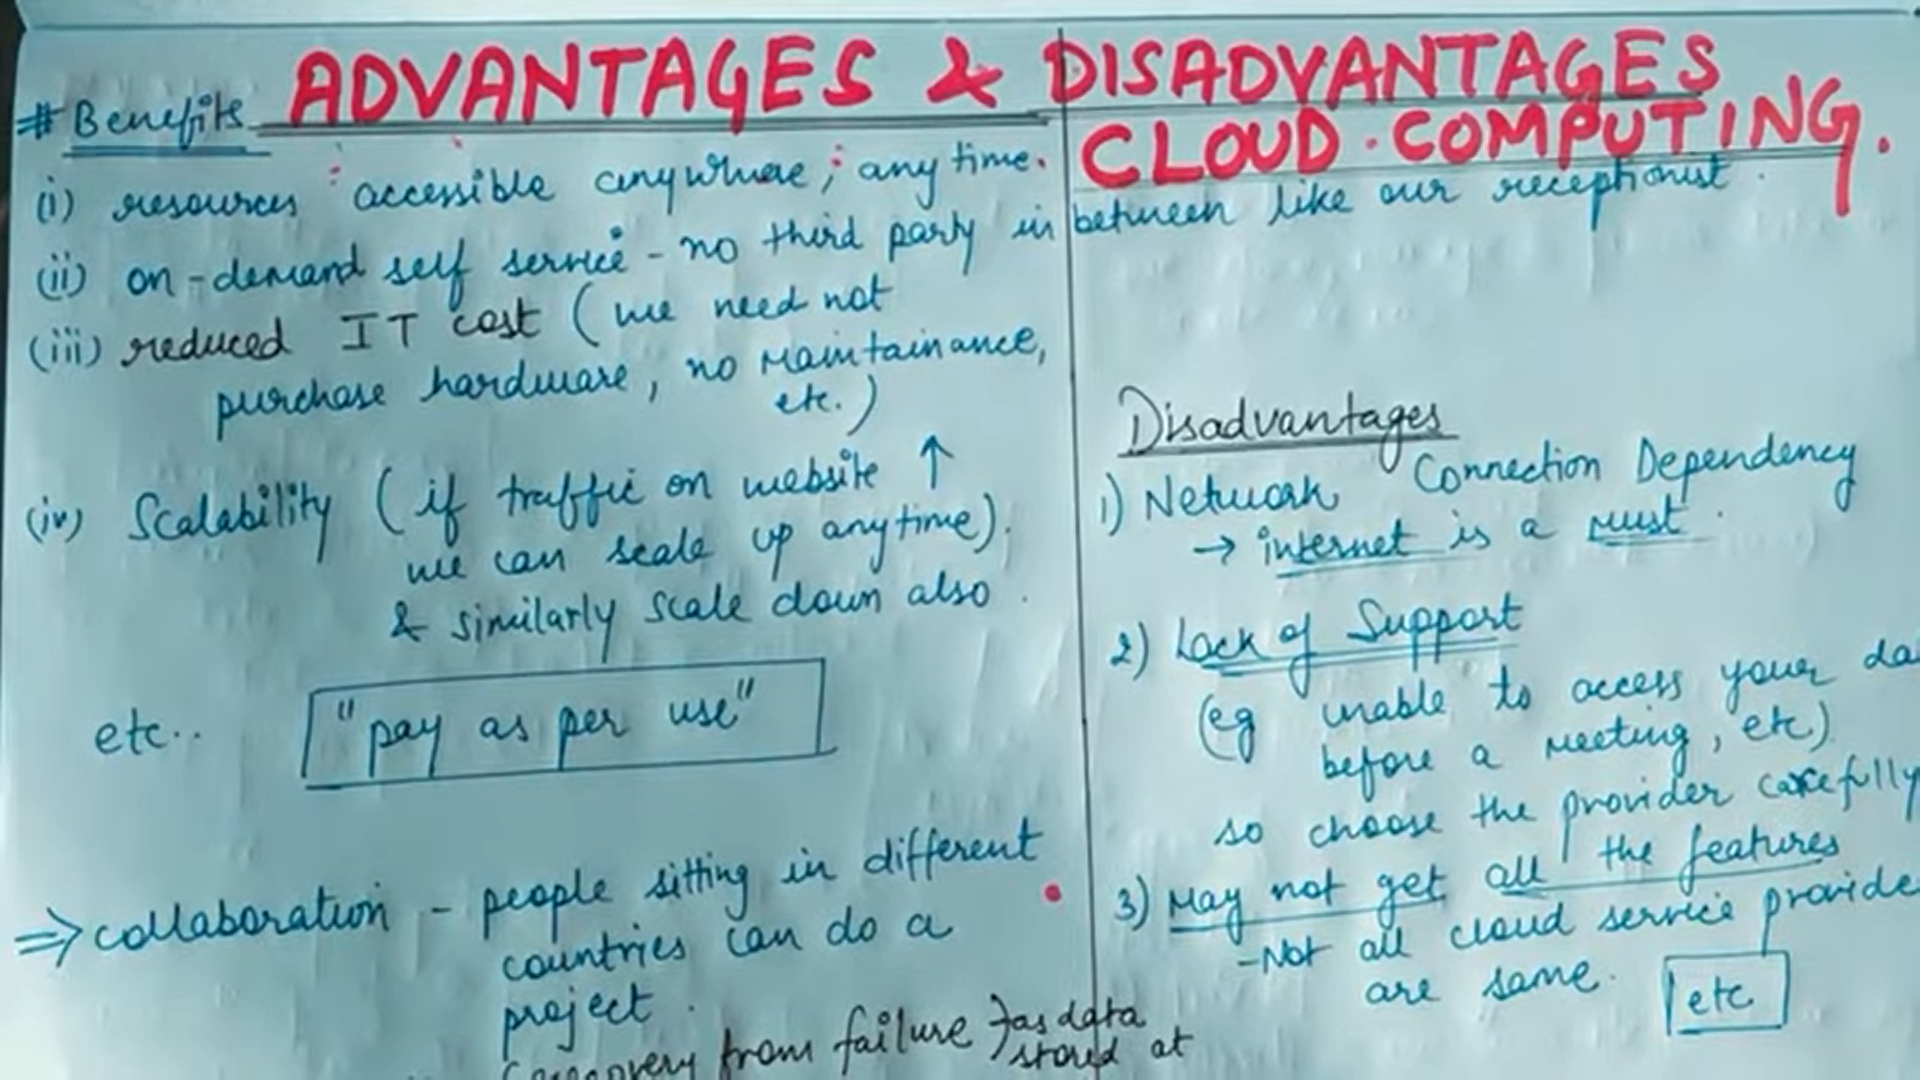 ADVANTAGES & DISADVANTAGES
CLOUD COMPUTING.
# Benefits
(i) resources accessible anywhere, any time.
(ii) on-demand self service - no third party in between like our receptionist.
(iii) reduced IT cost (we need not
purchase hardware, no maintainance,
etc.)
(iv) Scalability (if traffic on website ↑
we can scale up anytime).
& similarly scale down also.
etc..
"pay as per use"
⇒ collaboration - people sitting in different
countries can do a
project.
recovery from failure } as data
stored at
Disadvantages
1) Network Connection Dependency
→ internet is a must.
2) Lack of Support
(eg unable to access your da
before a meeting, etc)
so choose the provider carefully
3) May not get all the features
- Not all cloud service provide
are same.
etc